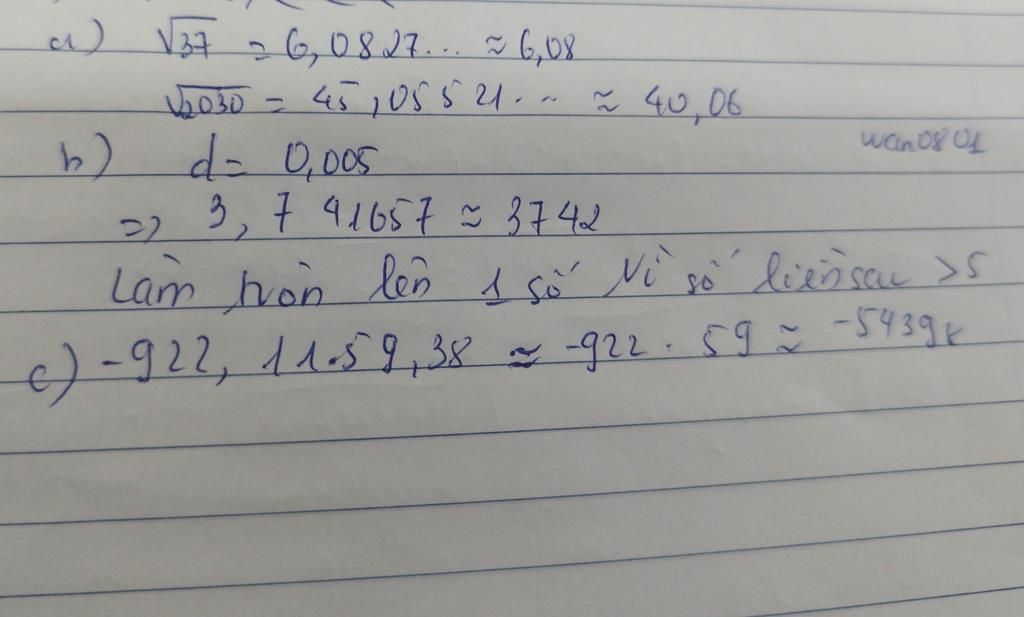 a) √37 = 6,0827... ≈ 6,08
√2030 = 45,05521... ≈ 40,06
wan0801
b) d = 0,005
=> 3,741657 ≈ 3742
Làm tròn lên 1 số vì số liền sau >5
c) -922,11.59,38 ≈ -922.59 ≈ -54398